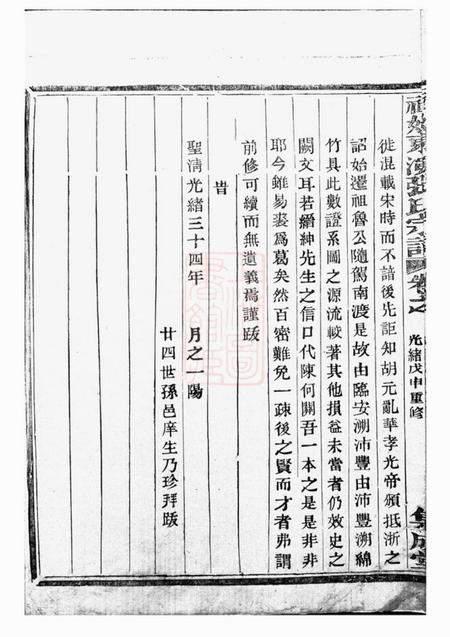 東溪張氏宗譜 卷之
光緒戊申重修
集成堂
徙混載宋時而不諳後先詎知胡元亂華孝光帝頒抵浙之
詔始遷祖魯公隨駕南渡是故由臨安溯沛豐由沛豐溯綿
竹具此數證系圖之源流較著其他損益未當者仍效史之
闕文耳若縉紳先生之信口代陳何關吾一本之是是非非
耶今雖易裘爲葛矣然百密難免一疎後之賢而才者弗謂
前修可續而無遺義焉謹跋
旹
聖清光緒三十四年 月之一陽
廿四世孫邑庠生乃珍拜跋